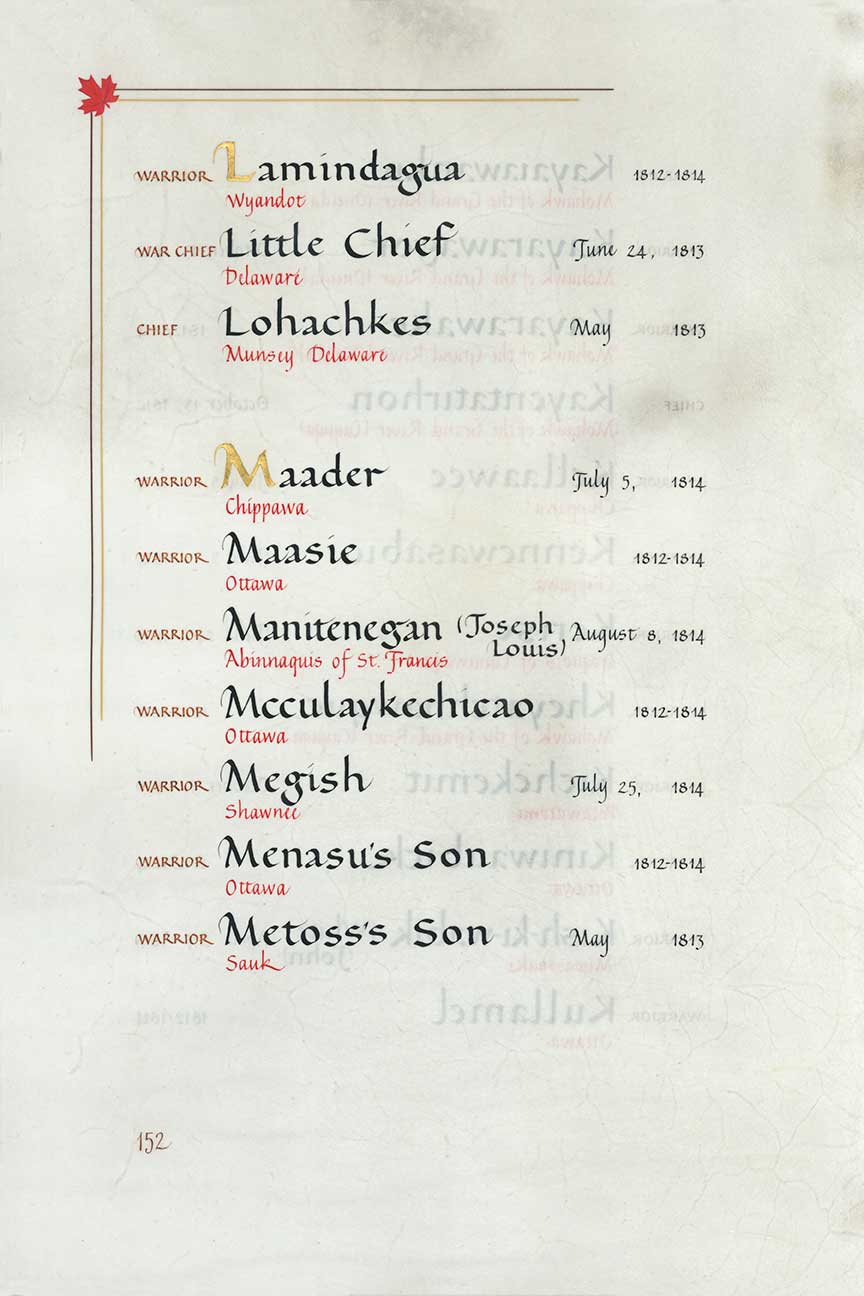 WARRIOR Lamindagua 1812-1814
Wyandot
WAR CHIEF Little Chief June 24, 1813
Delaware
CHIEF Lohachkes May 1813
Munsey Delaware
WARRIOR Maader July 5, 1814
Chippawa
WARRIOR Maasie 1812-1814
Ottawa
WARRIOR Manitenegan (Joseph Louis) August 8, 1814
Abinnaquis of St. Francis
WARRIOR Mcculaykechicao 1812-1814
Ottawa
WARRIOR Megish July 25, 1814
Shawnee
WARRIOR Menasu's Son 1812-1814
Ottawa
WARRIOR Metoss's Son May 1813
Sauk
152